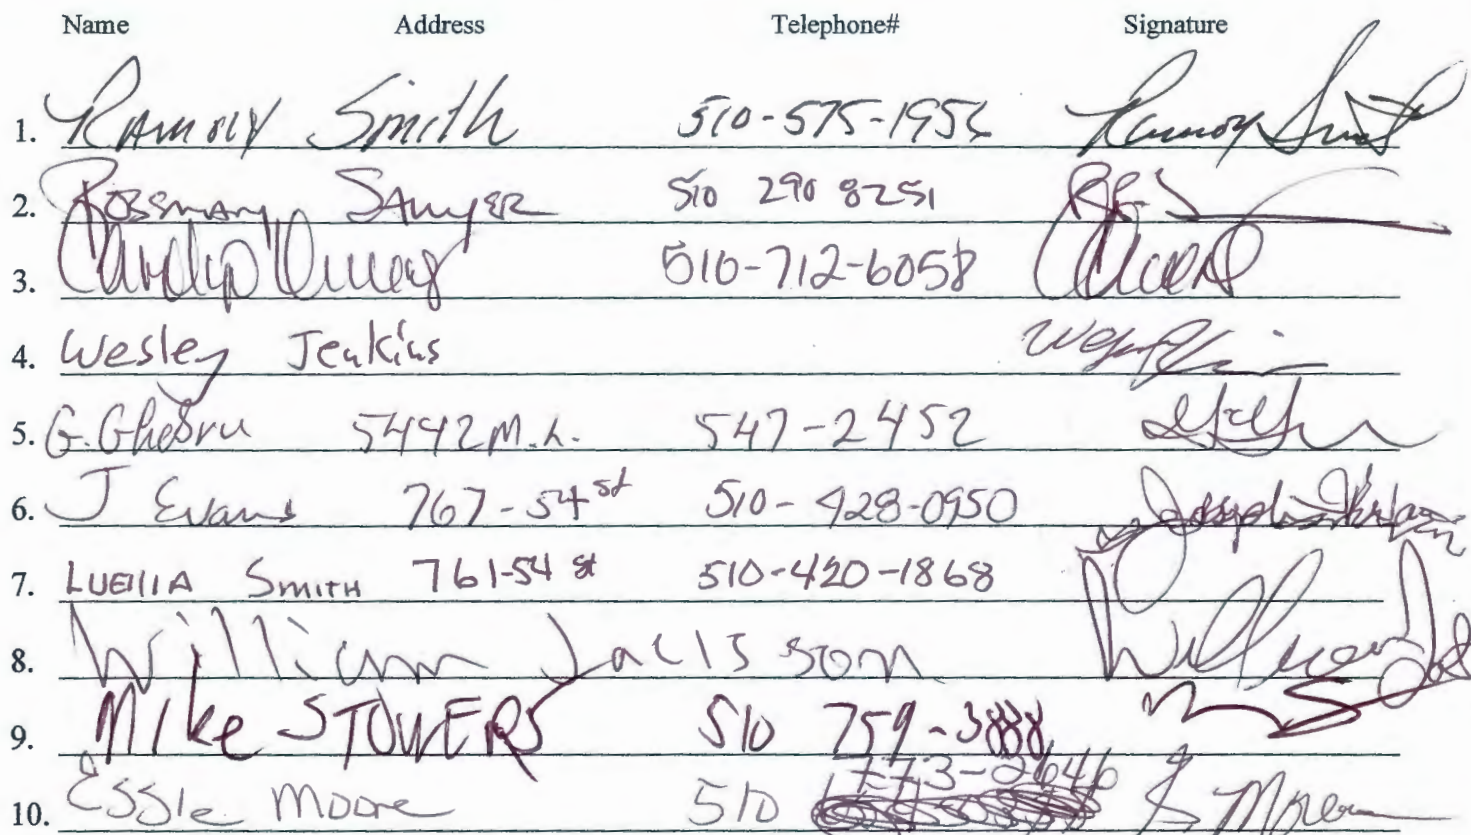 Name Address Telephone# Signature
1. Ramoy Smith 510-575-1956 Ramoy Smith
2. Rosemary Sawyer 510 290 8251 RRS
3. Carolyn 510-712-6058
4. Wesley Jenkins
5. G. Ghebru 5442 M.L. 547-2452
6. J Evans 767-54 st 510-428-0950
7. LUEllIA SMITH 761-54 st 510-420-1868
8. William Jackson
9. Mike STOWERS 510 759-3888
10. Essie Moore 510 773-2646